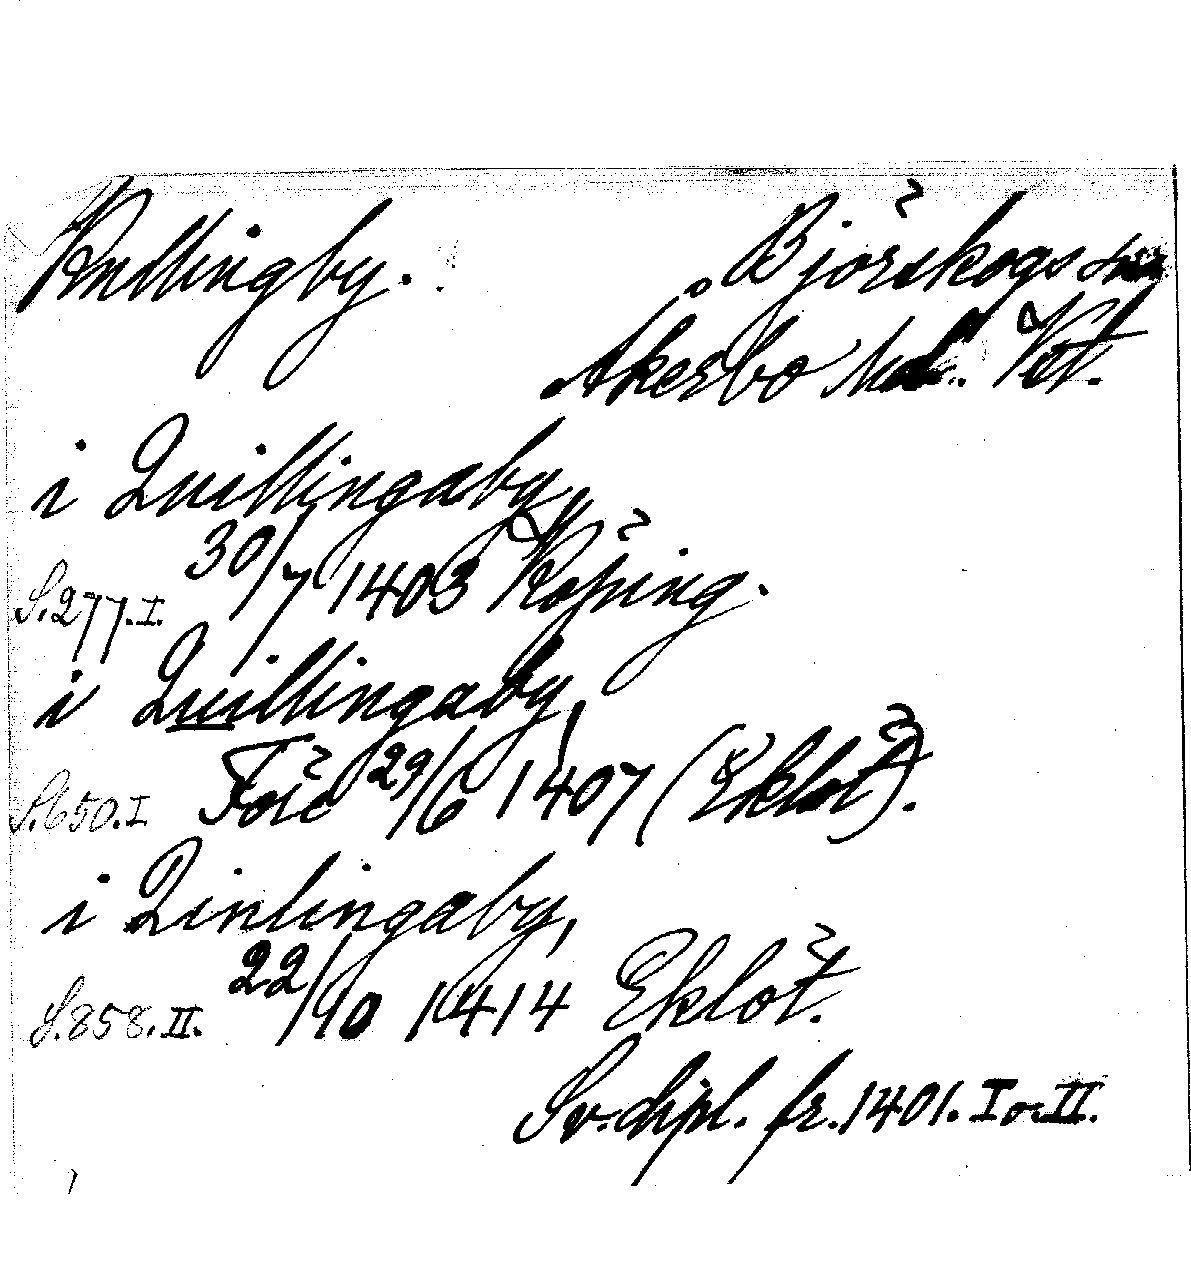 Kullingby. Björskogs sn
Åkerbo hd. Vstm.
i Quillingaby,
30/7 1403 Köping.
S. 277. I.
i Quillingaby,
S. 650. I Förb 29/6 1407 (Eklöt).
i Qinlingaby,
S. 858. II. 22/10 1414 Eklöt.
Sv. dipl. fr. 1401. I o. II.